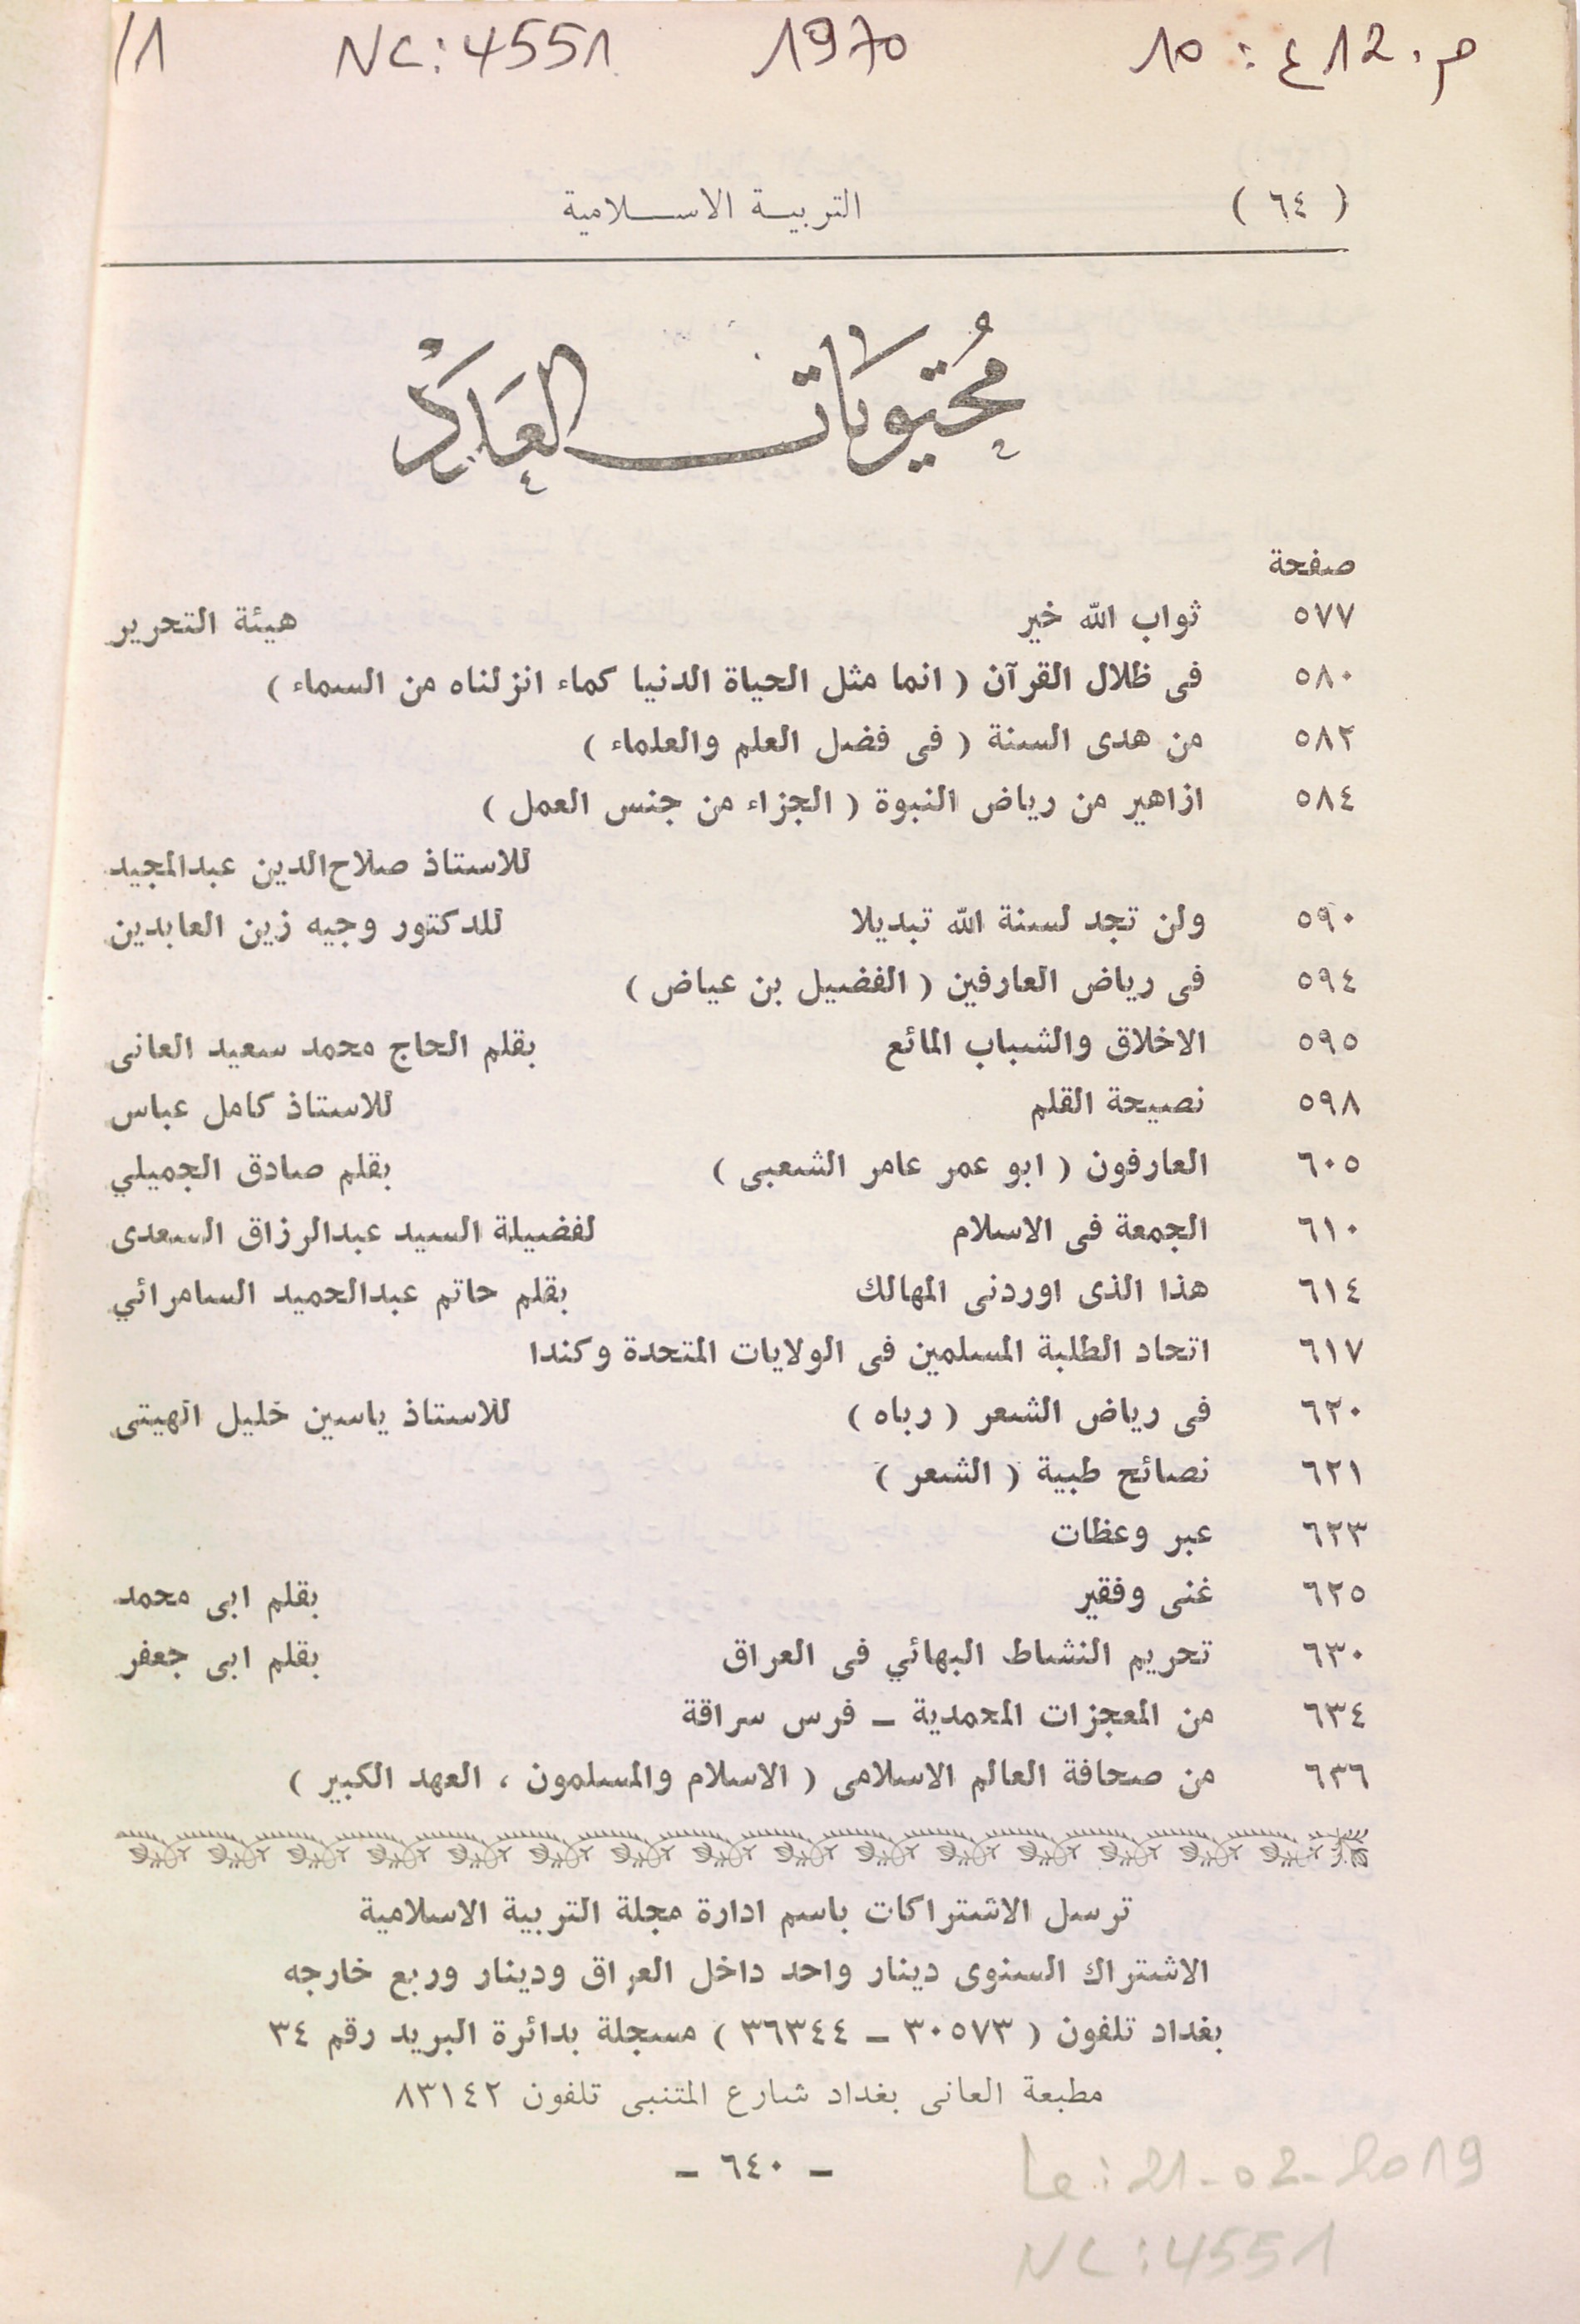 م. 12 ع: 10 1970 NC: 4551 /1
( ٦٤ ) التربيـة الاسـلامية
مُحتويَات العَدَدْ
صفحة
٥٧٧ ثواب الله خير هيئة التحرير
٥٨٠ فى ظلال القرآن ( انما مثل الحياة الدنيا كماء انزلناه من السماء )
٥٨٢ من هدى السنة ( فى فضل العلم والعلماء )
٥٨٤ ازاهير من رياض النبوة ( الجزاء من جنس العمل )
للاستاذ صلاح‌الدين عبدالمجيد
٥٩٠ ولن تجد لسنة الله تبديلا للدكتور وجيه زين العابدين
٥٩٤ فى رياض العارفين ( الفضيل بن عياض )
٥٩٥ الاخلاق والشباب المائع بقلم الحاج محمد سعيد العانى
٥٩٨ نصيحة القلم للاستاذ كامل عباس
٦٠٥ العارفون ( ابو عمر عامر الشعبى ) بقلم صادق الجميلي
٦١٠ الجمعة فى الاسلام لفضيلة السيد عبدالرزاق السعدى
٦١٤ هذا الذى اوردنى المهالك بقلم حاتم عبدالحميد السامرائي
٦١٧ اتحاد الطلبة المسلمين فى الولايات المتحدة وكندا
٦٢٠ فى رياض الشعر ( رباه ) للاستاذ ياسين خليل الهيتى
٦٢١ نصائح طبية ( الشعر )
٦٢٣ عبر وعظات
٦٢٥ غنى وفقير بقلم ابى محمد
٦٣٠ تحريم النشاط البهائي فى العراق بقلم ابى جعفر
٦٣٤ من المعجزات المحمدية ــ فرس سراقة
٦٣٦ من صحافة العالم الاسلامى ( الاسلام والمسلمون ، العهد الكبير )
ترسل الاشتراكات باسم ادارة مجلة التربية الاسلامية
الاشتراك السنوى دينار واحد داخل العراق ودينار وربع خارجه
بغداد تلفون ( ٣٠٥٧٣ ــ ٣٦٣٤٤ ) مسجلة بدائرة البريد رقم ٣٤
مطبعة العانى بغداد شارع المتنبى تلفون ٨٣١٤٢
– ٦٤٠ –
Le: 21-02-2019
NC: 4551